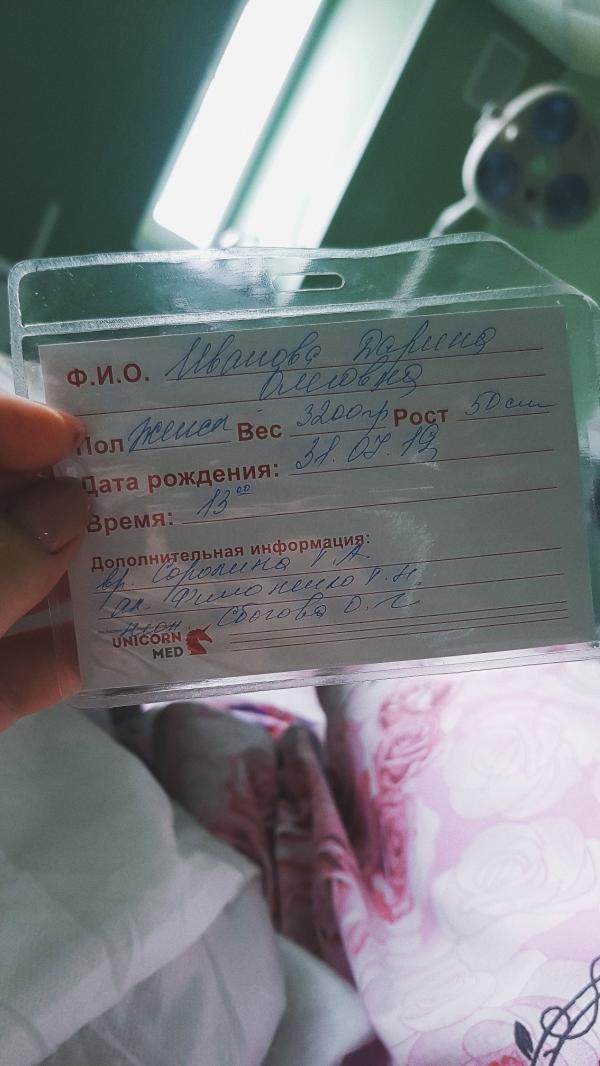 Ф.И.О. Иванова Дарина
Олеговна
Пол женск. Вес 3200гр Рост 50см
Дата рождения: 31.07.19
Время: 13⁰⁰
Дополнительная информация:
вр. Сорокина Т. А.
ак. Филоненко Т. Н.
неон. Сбогова О. Г.
UNICORN
MED